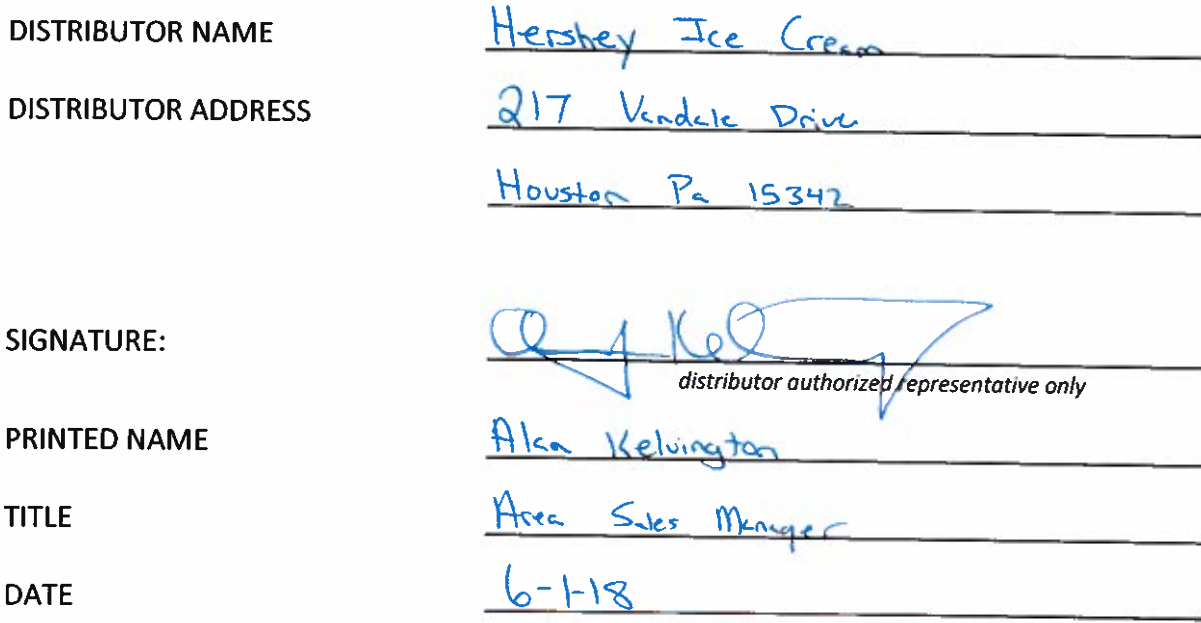 DISTRIBUTOR NAME Hershey Ice Cream
DISTRIBUTOR ADDRESS 217 Vandale Drive
Houston Pa 15342
SIGNATURE:
distributor authorized representative only
PRINTED NAME Alan Kelvington
TITLE Area Sales Manager
DATE 6-1-18